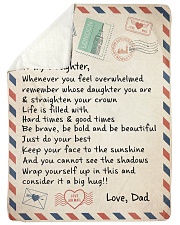 Daughter,
Whenever you feel overwhelmed
remember whose daughter you are
& straighten your crown
Life is filled with
Hard times & good times
Be brave, be bold and be beautiful
Just do your best
Keep your face to the sunshine
And you cannot see the shadows
Wrap yourself up in this and
consider it a big hug!!
Love, Dad